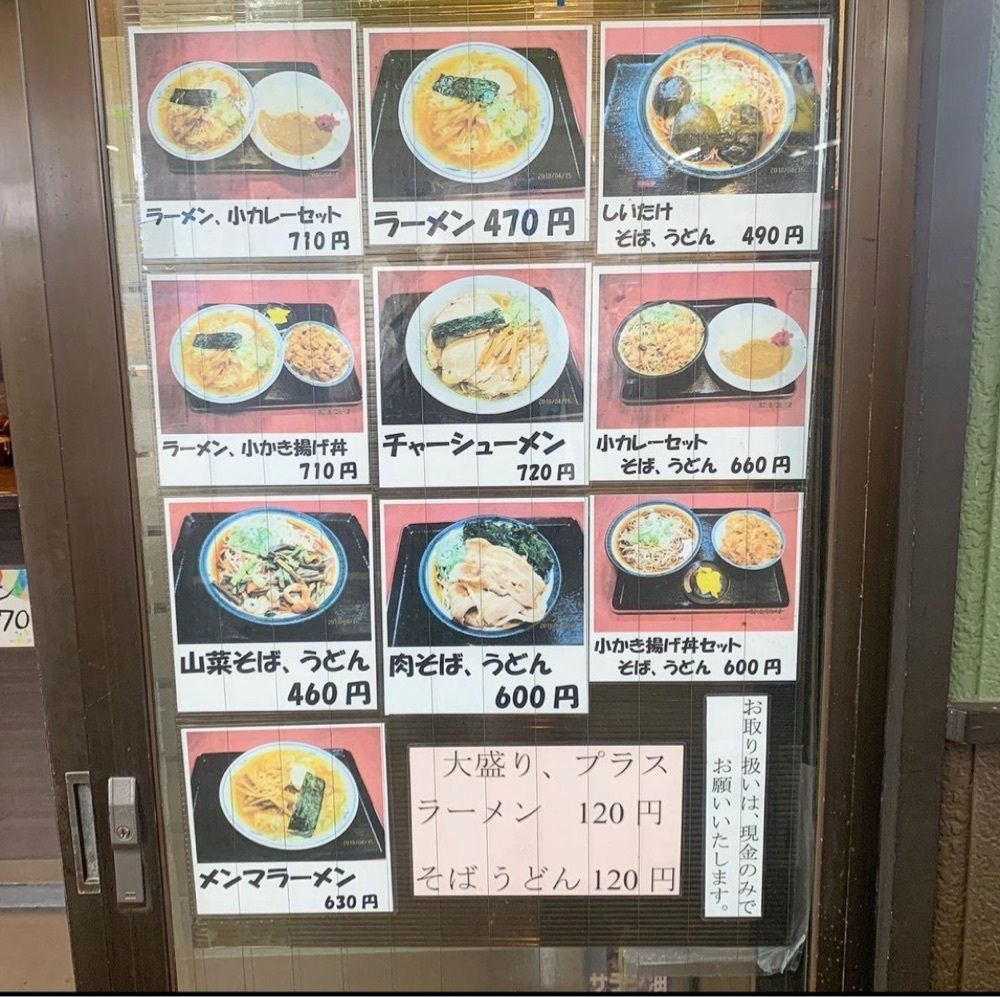 ラーメン、小カレーセット
710円
ラーメン 470円
しいたけ
そば、うどん 490円
ラーメン、小かき揚げ丼
710円
チャーシューメン
720円
小カレーセット
そば、うどん 660円
山菜そば、うどん
460円
肉そば、うどん
600円
小かき揚げ丼セット
そば、うどん 600円
メンマラーメン
630円
大盛り、プラス
ラーメン 120円
そばうどん 120円
お取り扱いは、現金のみで
お願いいたします。
70
2018/04/15